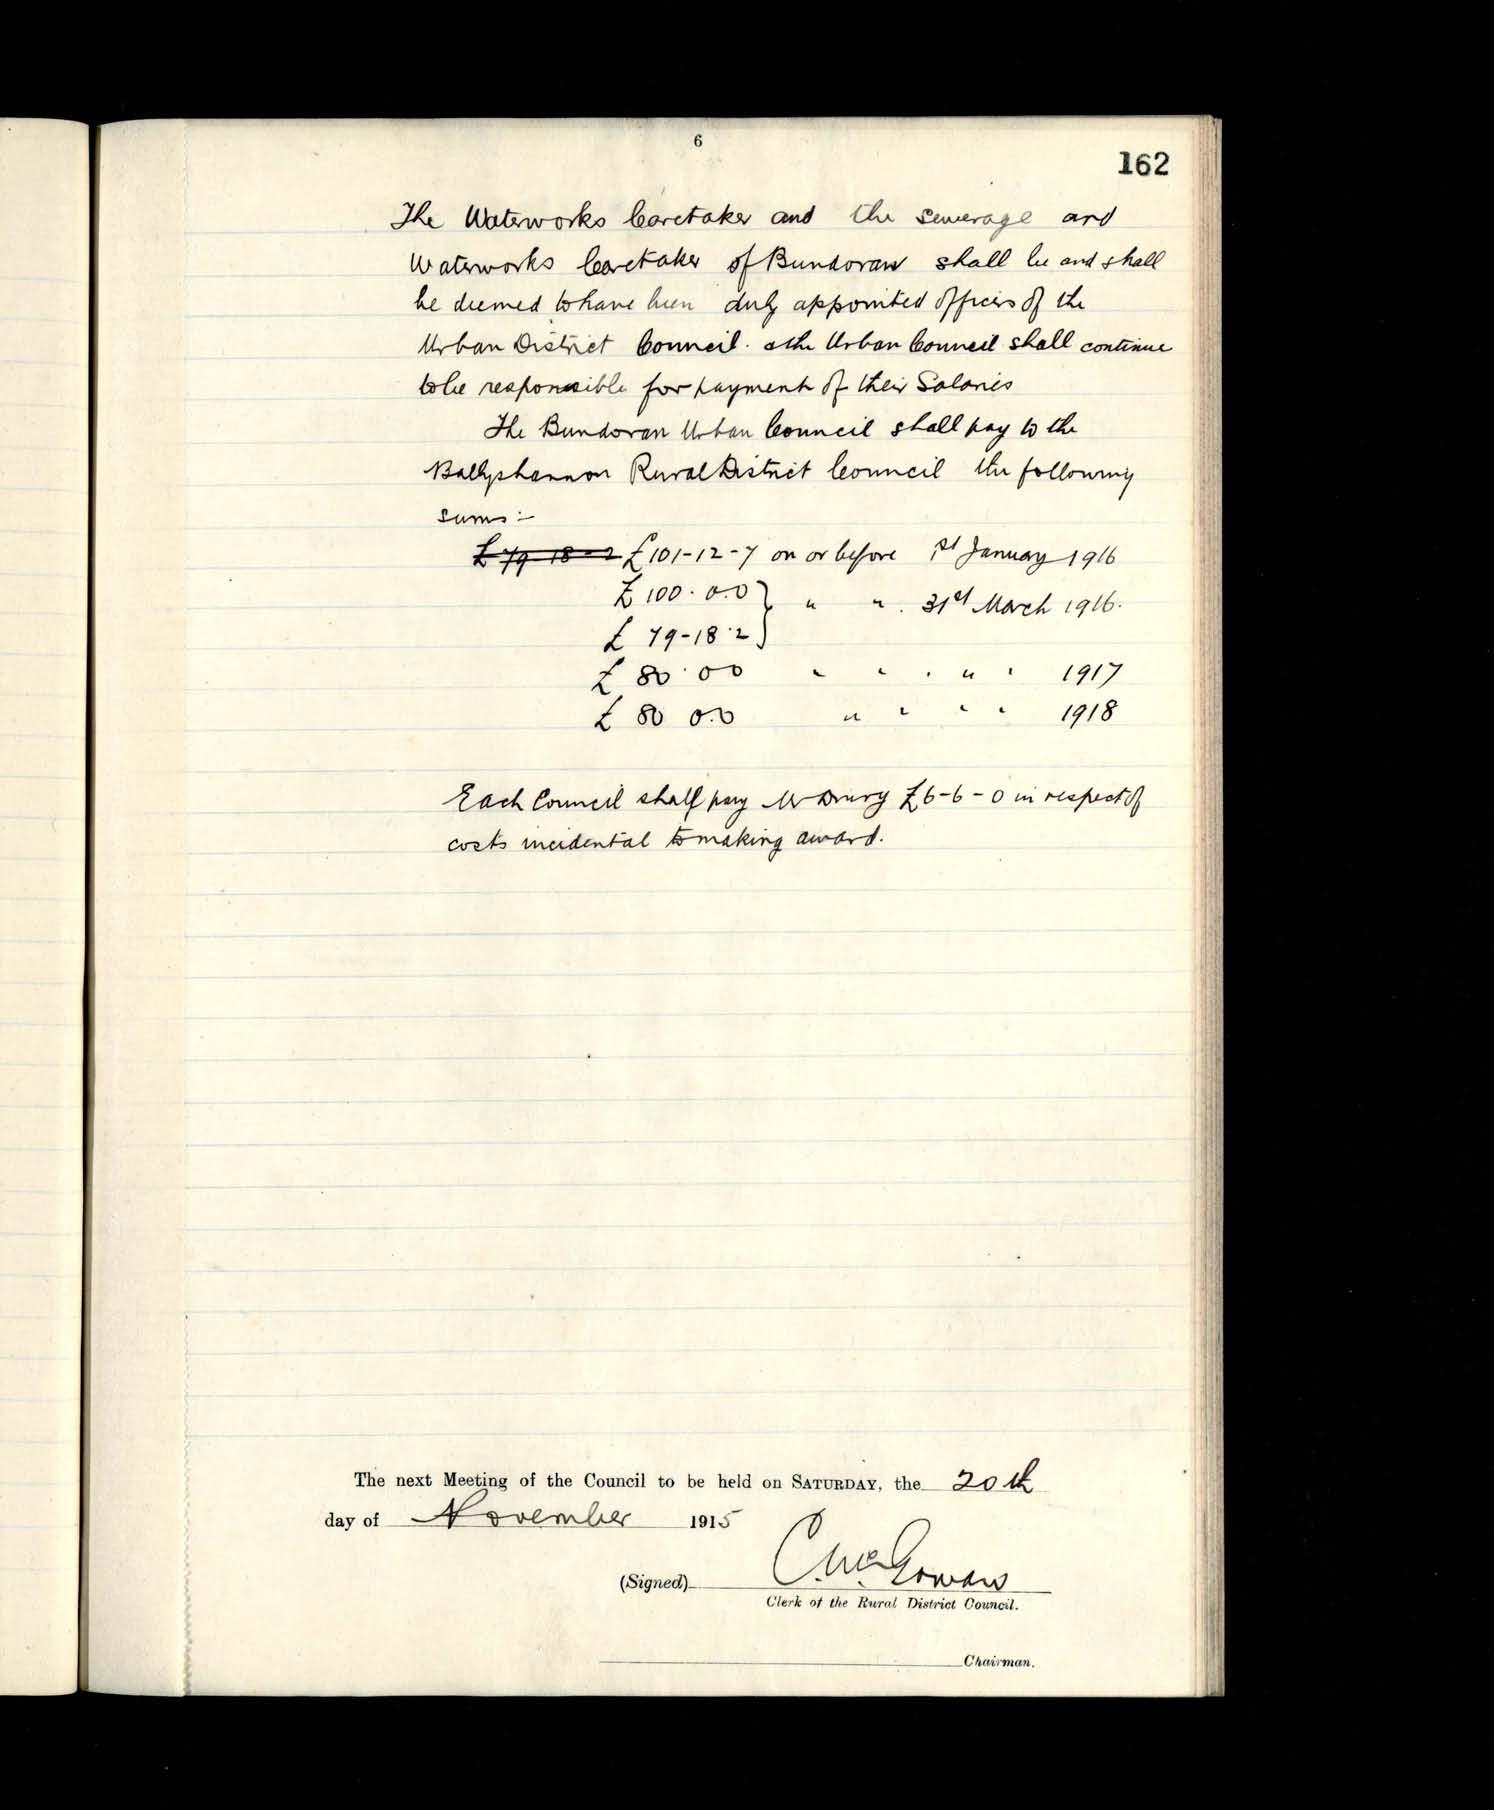 6
162
The Waterworks Caretaker and the Sewerage and
Waterworks Caretaker of Bundoran shall be and shall
be deemed to have been duly appointed officers of the
Urban District Council. & the Urban Council shall continue
to be responsible for payment of their Salaries
The Bundoran Urban Council shall pay to the
Ballyshannon Rural District Council the following
sums:-
£79-18-2 £101-12-7 on or before 1st January 1916
£100.0.0 } " " . 31st March 1916.
£ 79-18.2 }
£ 80.00 " " . " . 1917
£ 80 0.0 " " " " 1918
Each Council shall pay Mr Drury £6-6-0 in respect of
costs incidental to making award.
The next Meeting of the Council to be held on SATURDAY, the 20th
day of November 1915
(Signed) C. McGowan
Clerk of the Rural District Council.
Chairman.